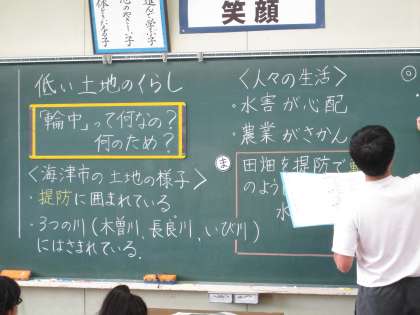 笑顔
低い土地のくらし
「輪中」って何なの?
何のため?
<海津市の土地の様子>
・堤防に囲まれている
・3つの川(木曽川、長良川、いび川)
にはさまれている.
<人々の生活>
・水害が心配
・農業がさかん
ま
田畑を堤防で
のよう
水